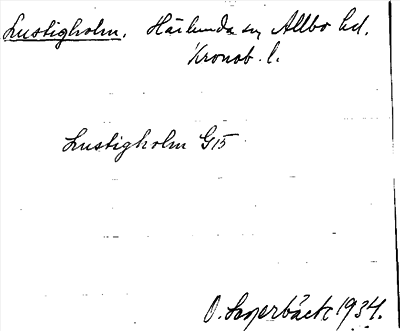 Lustigholm. Härlunda sn Allbo hd.
Kronob. l.
Lustigholm G15
O. 1934.